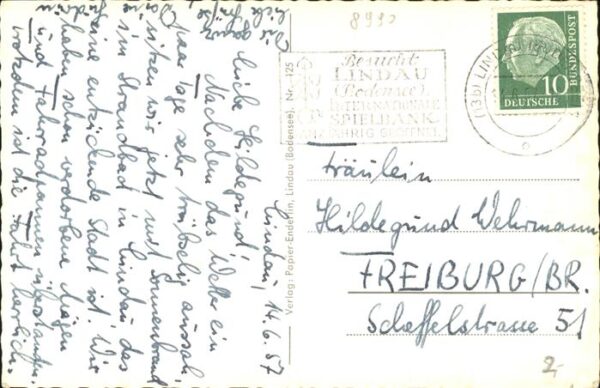 8990
Besucht
LINDAU
(Bodensee).
INTERNATIONALE
SPIELBANK
GANZJÄHRIG GEÖFFNET
(13b) LINDAU
10
DEUTSCHE
BUNDESPOST
Lindau, 14.6.57
Liebe Hildegund!
Nachdem das Wetter ein
paar Tage sehr trübselig aussah,
sitzen wir jetzt mit Sonnenbrand
im Strandbad in Lindau, das
eine entzückende Stadt ist. Wir
haben schon verdorbene Mägen
und Fahrradpannen überstanden,
trotzdem ist die Fahrt herrlich.
liebe Grüße
Deine
Verlag: Papier-Enderlin, Lindau (Bodensee), Nr. 125
Fräulein
Hildegund Wehrmann
FREIBURG/BR.
Scheffelstrasse 51
2,-